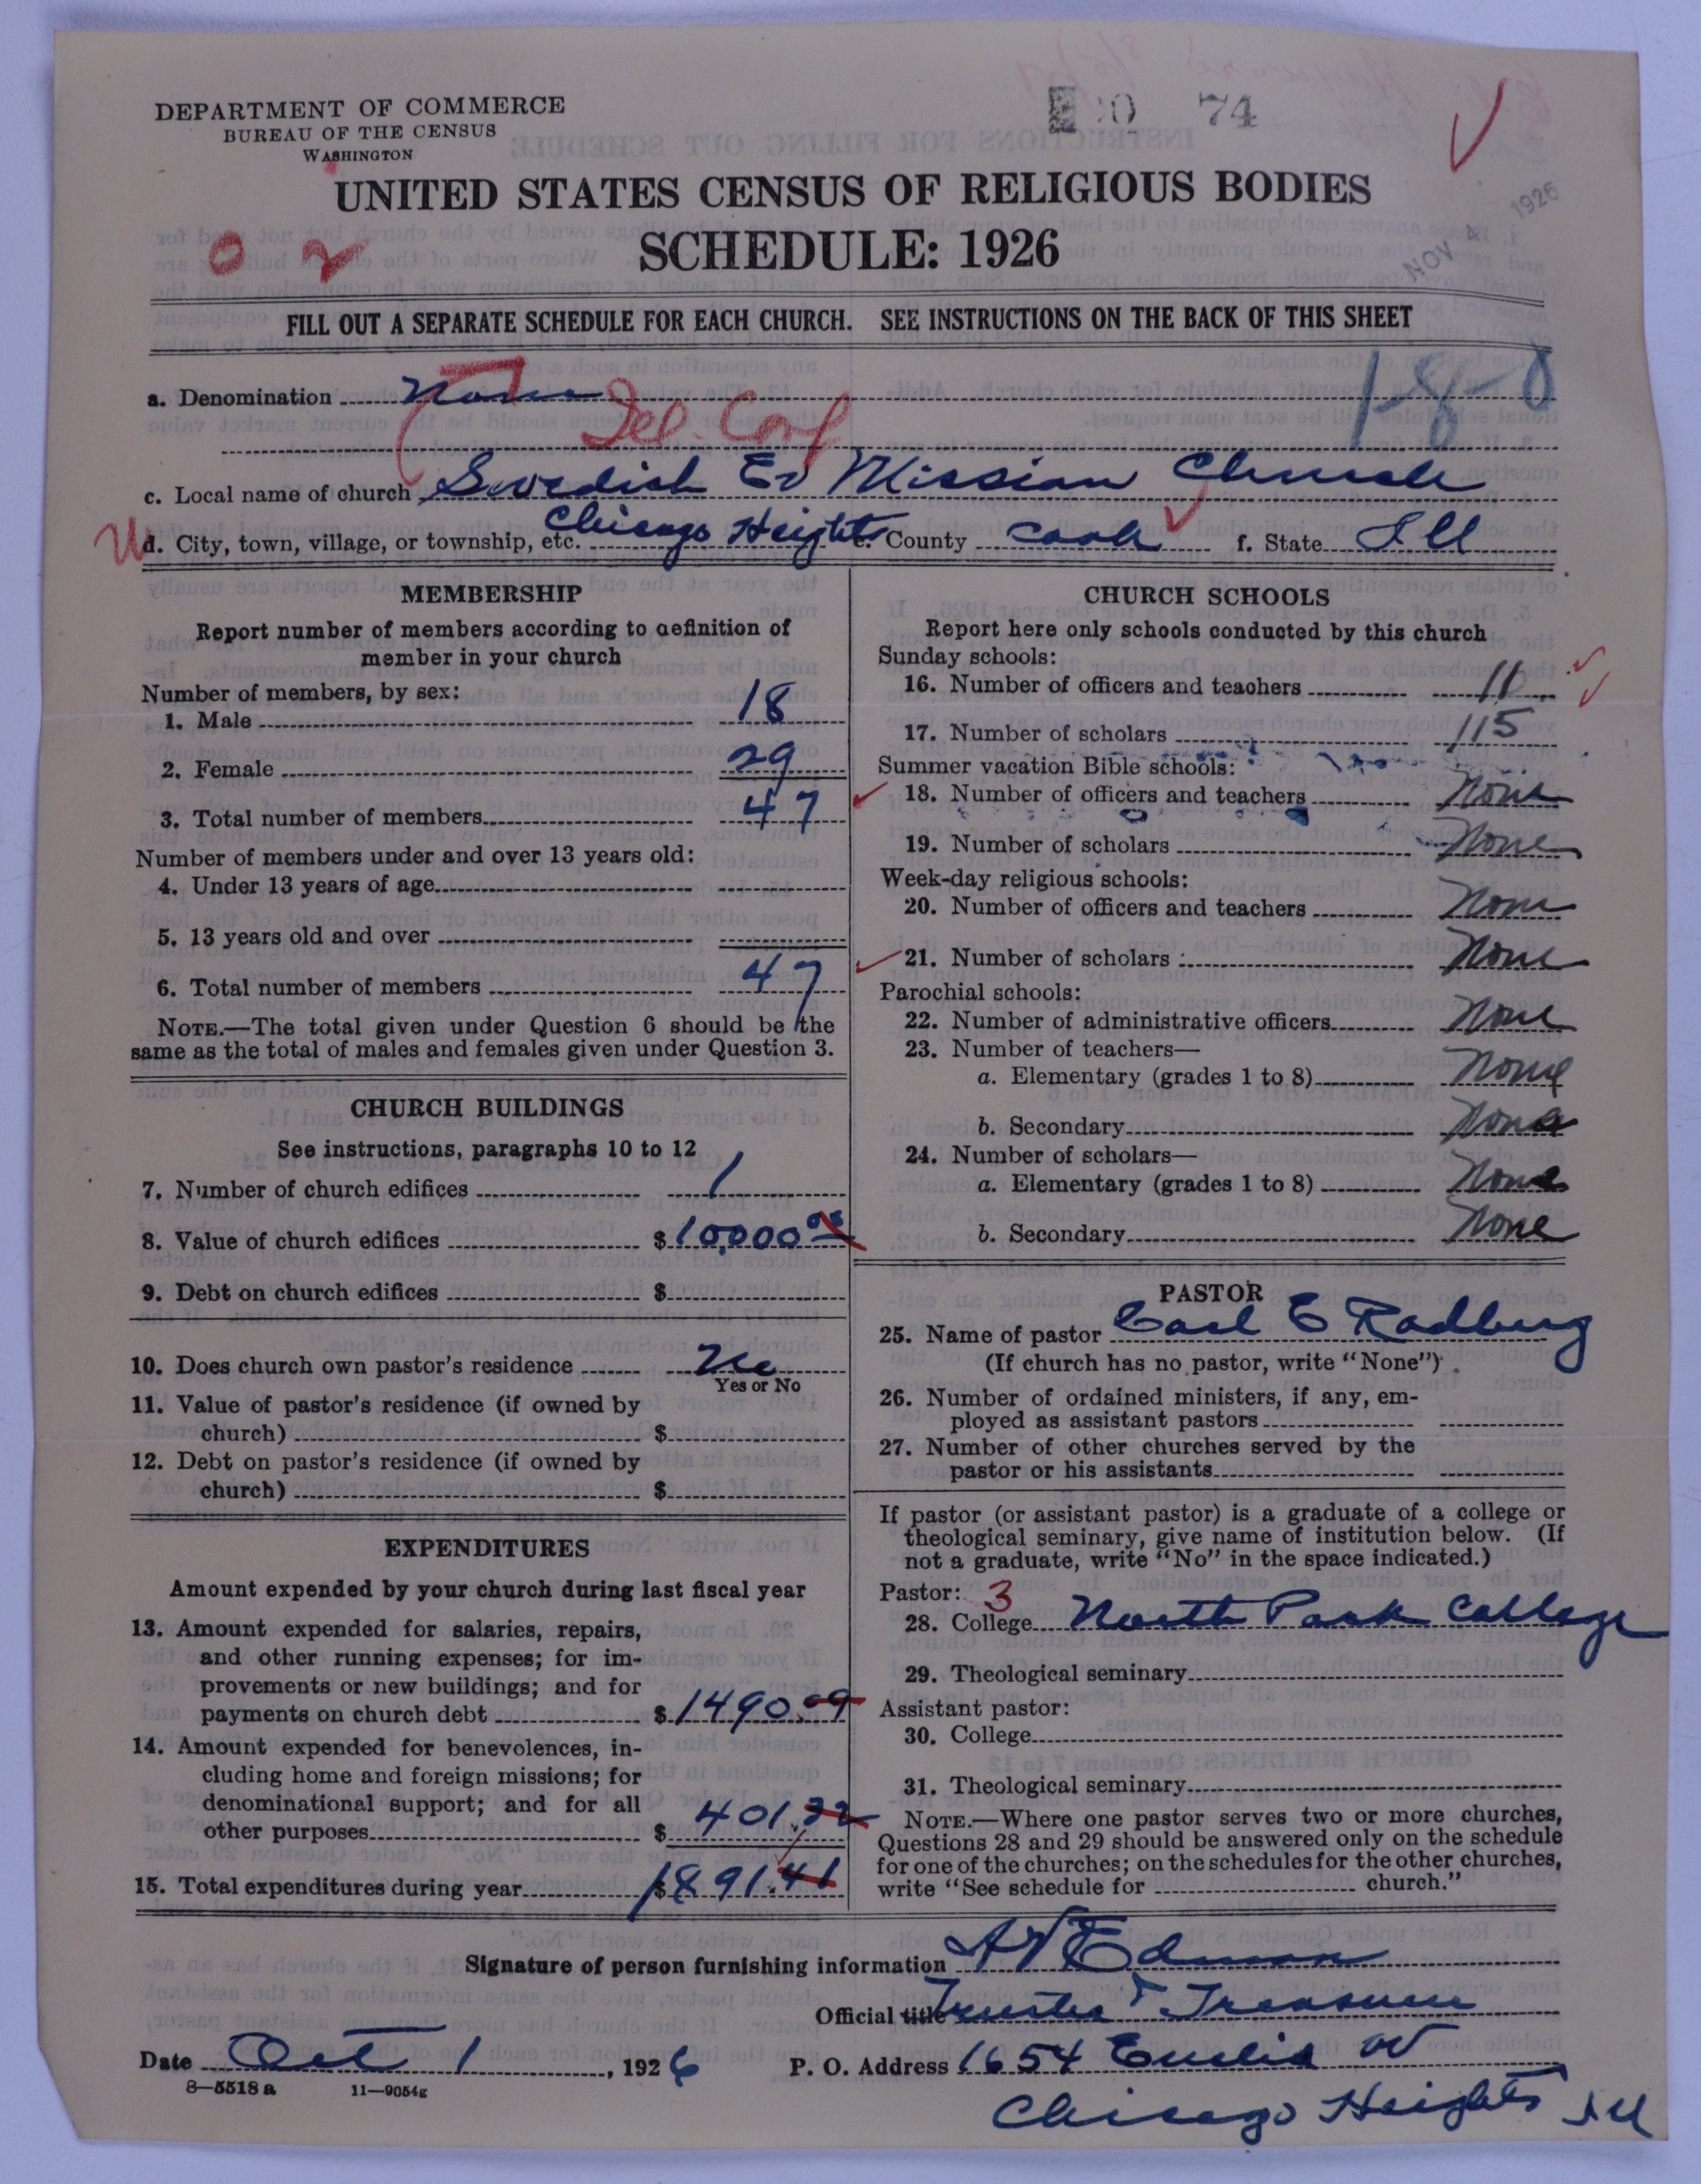 DEPARTMENT OF COMMERCE
BUREAU OF THE CENSUS
WASHINGTON
74
NOV 4 1926
UNITED STATES CENSUS OF RELIGIOUS BODIES
SCHEDULE: 1926
0 2
FILL OUT A SEPARATE SCHEDULE FOR EACH CHURCH. SEE INSTRUCTIONS ON THE BACK OF THIS SHEET
1-8-0
a. Denomination None
c. Local name of church Swedish Ev Mission Church
d. City, town, village, or township, etc. Chicago Heights e. County Cook f. State Ill
MEMBERSHIP
Report number of members according to definition of
member in your church
Number of members, by sex:
1. Male 18
2. Female 29
3. Total number of members 47
Number of members under and over 13 years old:
4. Under 13 years of age
5. 13 years old and over
6. Total number of members 47
NOTE.—The total given under Question 6 should be the
same as the total of males and females given under Question 3.
CHURCH BUILDINGS
See instructions, paragraphs 10 to 12
7. Number of church edifices 1
8. Value of church edifices $ 10,000 00
9. Debt on church edifices $
10. Does church own pastor's residence No
Yes or No
11. Value of pastor's residence (if owned by
church) $
12. Debt on pastor's residence (if owned by
church) $
EXPENDITURES
Amount expended by your church during last fiscal year
13. Amount expended for salaries, repairs,
and other running expenses; for im-
provements or new buildings; and for
payments on church debt $ 1490.09
14. Amount expended for benevolences, in-
cluding home and foreign missions; for
denominational support; and for all
other purposes $ 401.32
15. Total expenditures during year $ 1891.41
CHURCH SCHOOLS
Report here only schools conducted by this church
Sunday schools:
16. Number of officers and teachers 11
17. Number of scholars 115
Summer vacation Bible schools:
18. Number of officers and teachers None
19. Number of scholars None
Week-day religious schools:
20. Number of officers and teachers None
21. Number of scholars None
Parochial schools:
22. Number of administrative officers None
23. Number of teachers—
a. Elementary (grades 1 to 8) None
b. Secondary None
24. Number of scholars—
a. Elementary (grades 1 to 8) None
b. Secondary None
PASTOR
25. Name of pastor Carl E Radburg
(If church has no pastor, write "None")
26. Number of ordained ministers, if any, em-
ployed as assistant pastors
27. Number of other churches served by the
pastor or his assistants
If pastor (or assistant pastor) is a graduate of a college or
theological seminary, give name of institution below. (If
not a graduate, write "No" in the space indicated.)
Pastor: 3
28. College North Park College
29. Theological seminary
Assistant pastor:
30. College
31. Theological seminary
NOTE.—Where one pastor serves two or more churches,
Questions 28 and 29 should be answered only on the schedule
for one of the churches; on the schedules for the other churches,
write "See schedule for church."
Signature of person furnishing information A V Edman
Official title Trustee & Treasurer
Date Oct 1, 1926 P. O. Address 1654 Euclid av
8—5518 a 11—9054g
Chicago Heights Ill